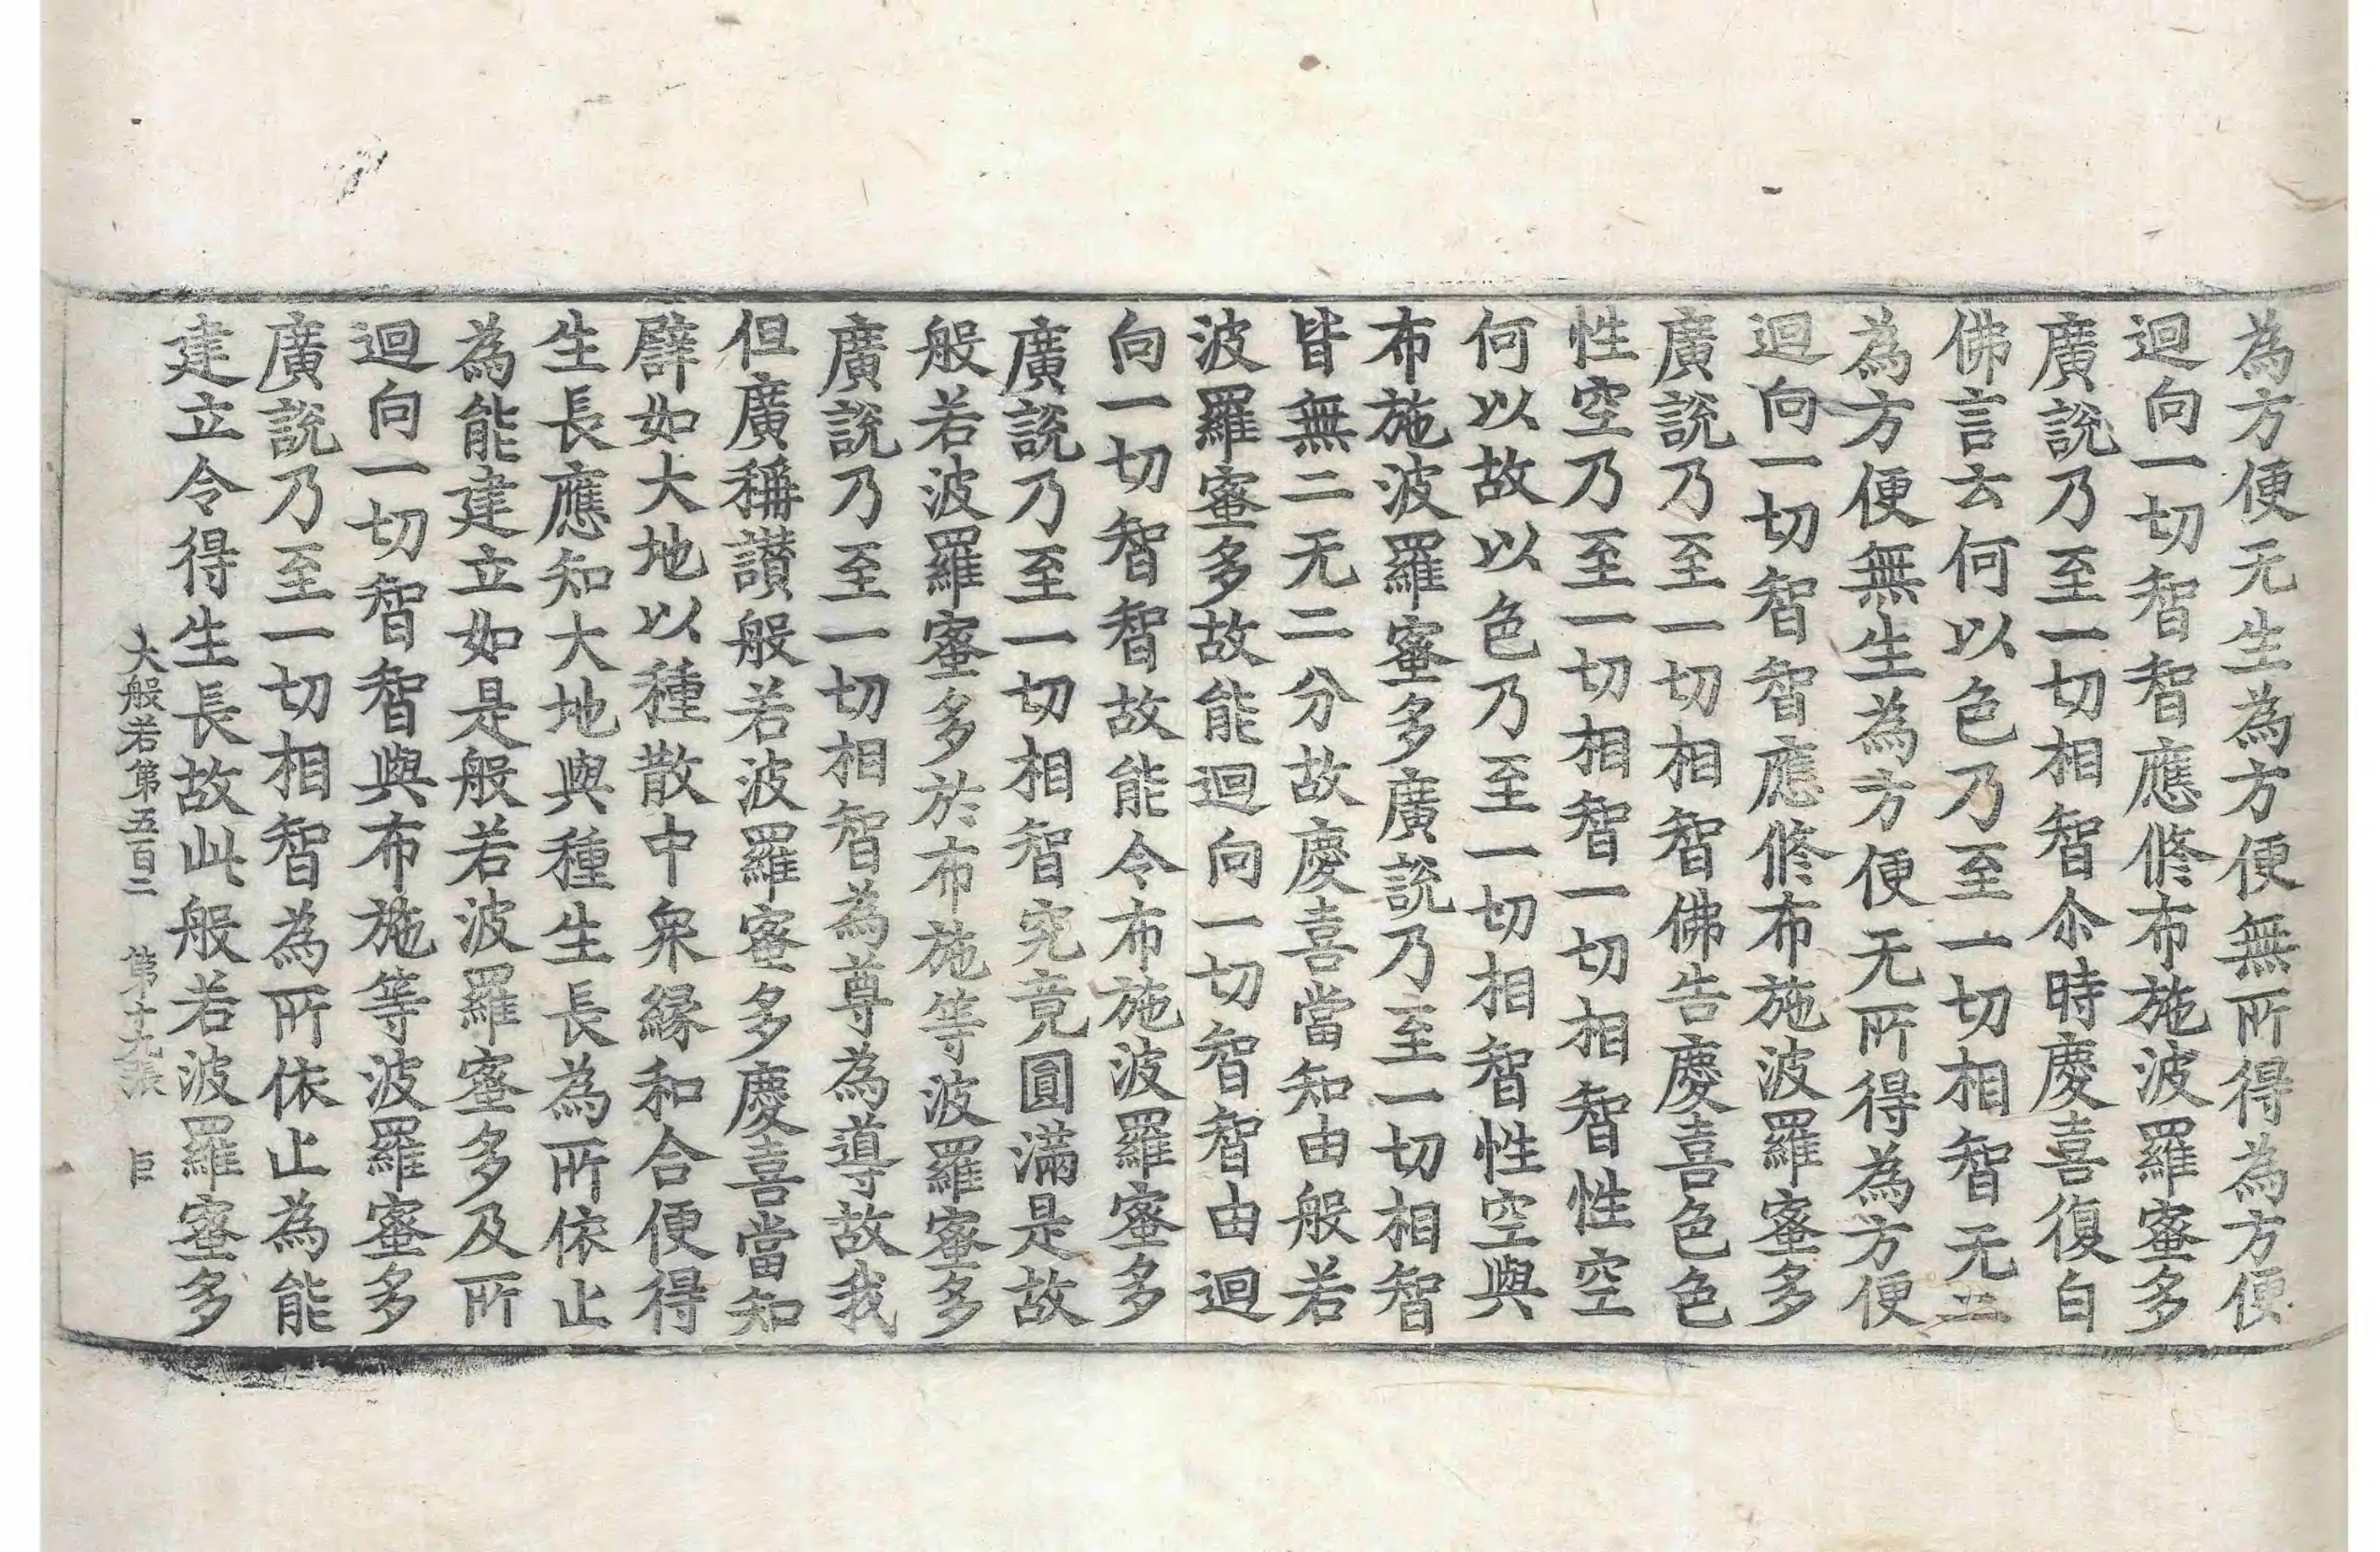 為方便无生為方便無所得為方便
迴向一切智智應修布施波羅蜜多
廣說乃至一切相智尒時慶喜復白
佛言云何以色乃至一切相智无二
為方便無生為方便无所得為方便
迴向一切智智應修布施波羅蜜多
廣說乃至一切相智佛告慶喜色色
性空乃至一切相智一切相智性空
何以故以色乃至一切相智性空與
布施波羅蜜多廣說乃至一切相智
皆無二无二分故慶喜當知由般若
波羅蜜多故能迴向一切智智由迴
向一切智智故能令布施波羅蜜多
廣說乃至一切相智究竟圓滿是故
般若波羅蜜多於布施等波羅蜜多
廣說乃至一切相智為尊為導故我
但廣稱讃般若波羅蜜多慶喜當知
譬如大地以種散中衆緣和合便得
生長應知大地與種生長為所依止
為能建立如是般若波羅蜜多及所
迴向一切智智與布施等波羅蜜多
廣說乃至一切相智為所依止為能
建立令得生長故此般若波羅蜜多
大般若第五百二 第十九張 巨